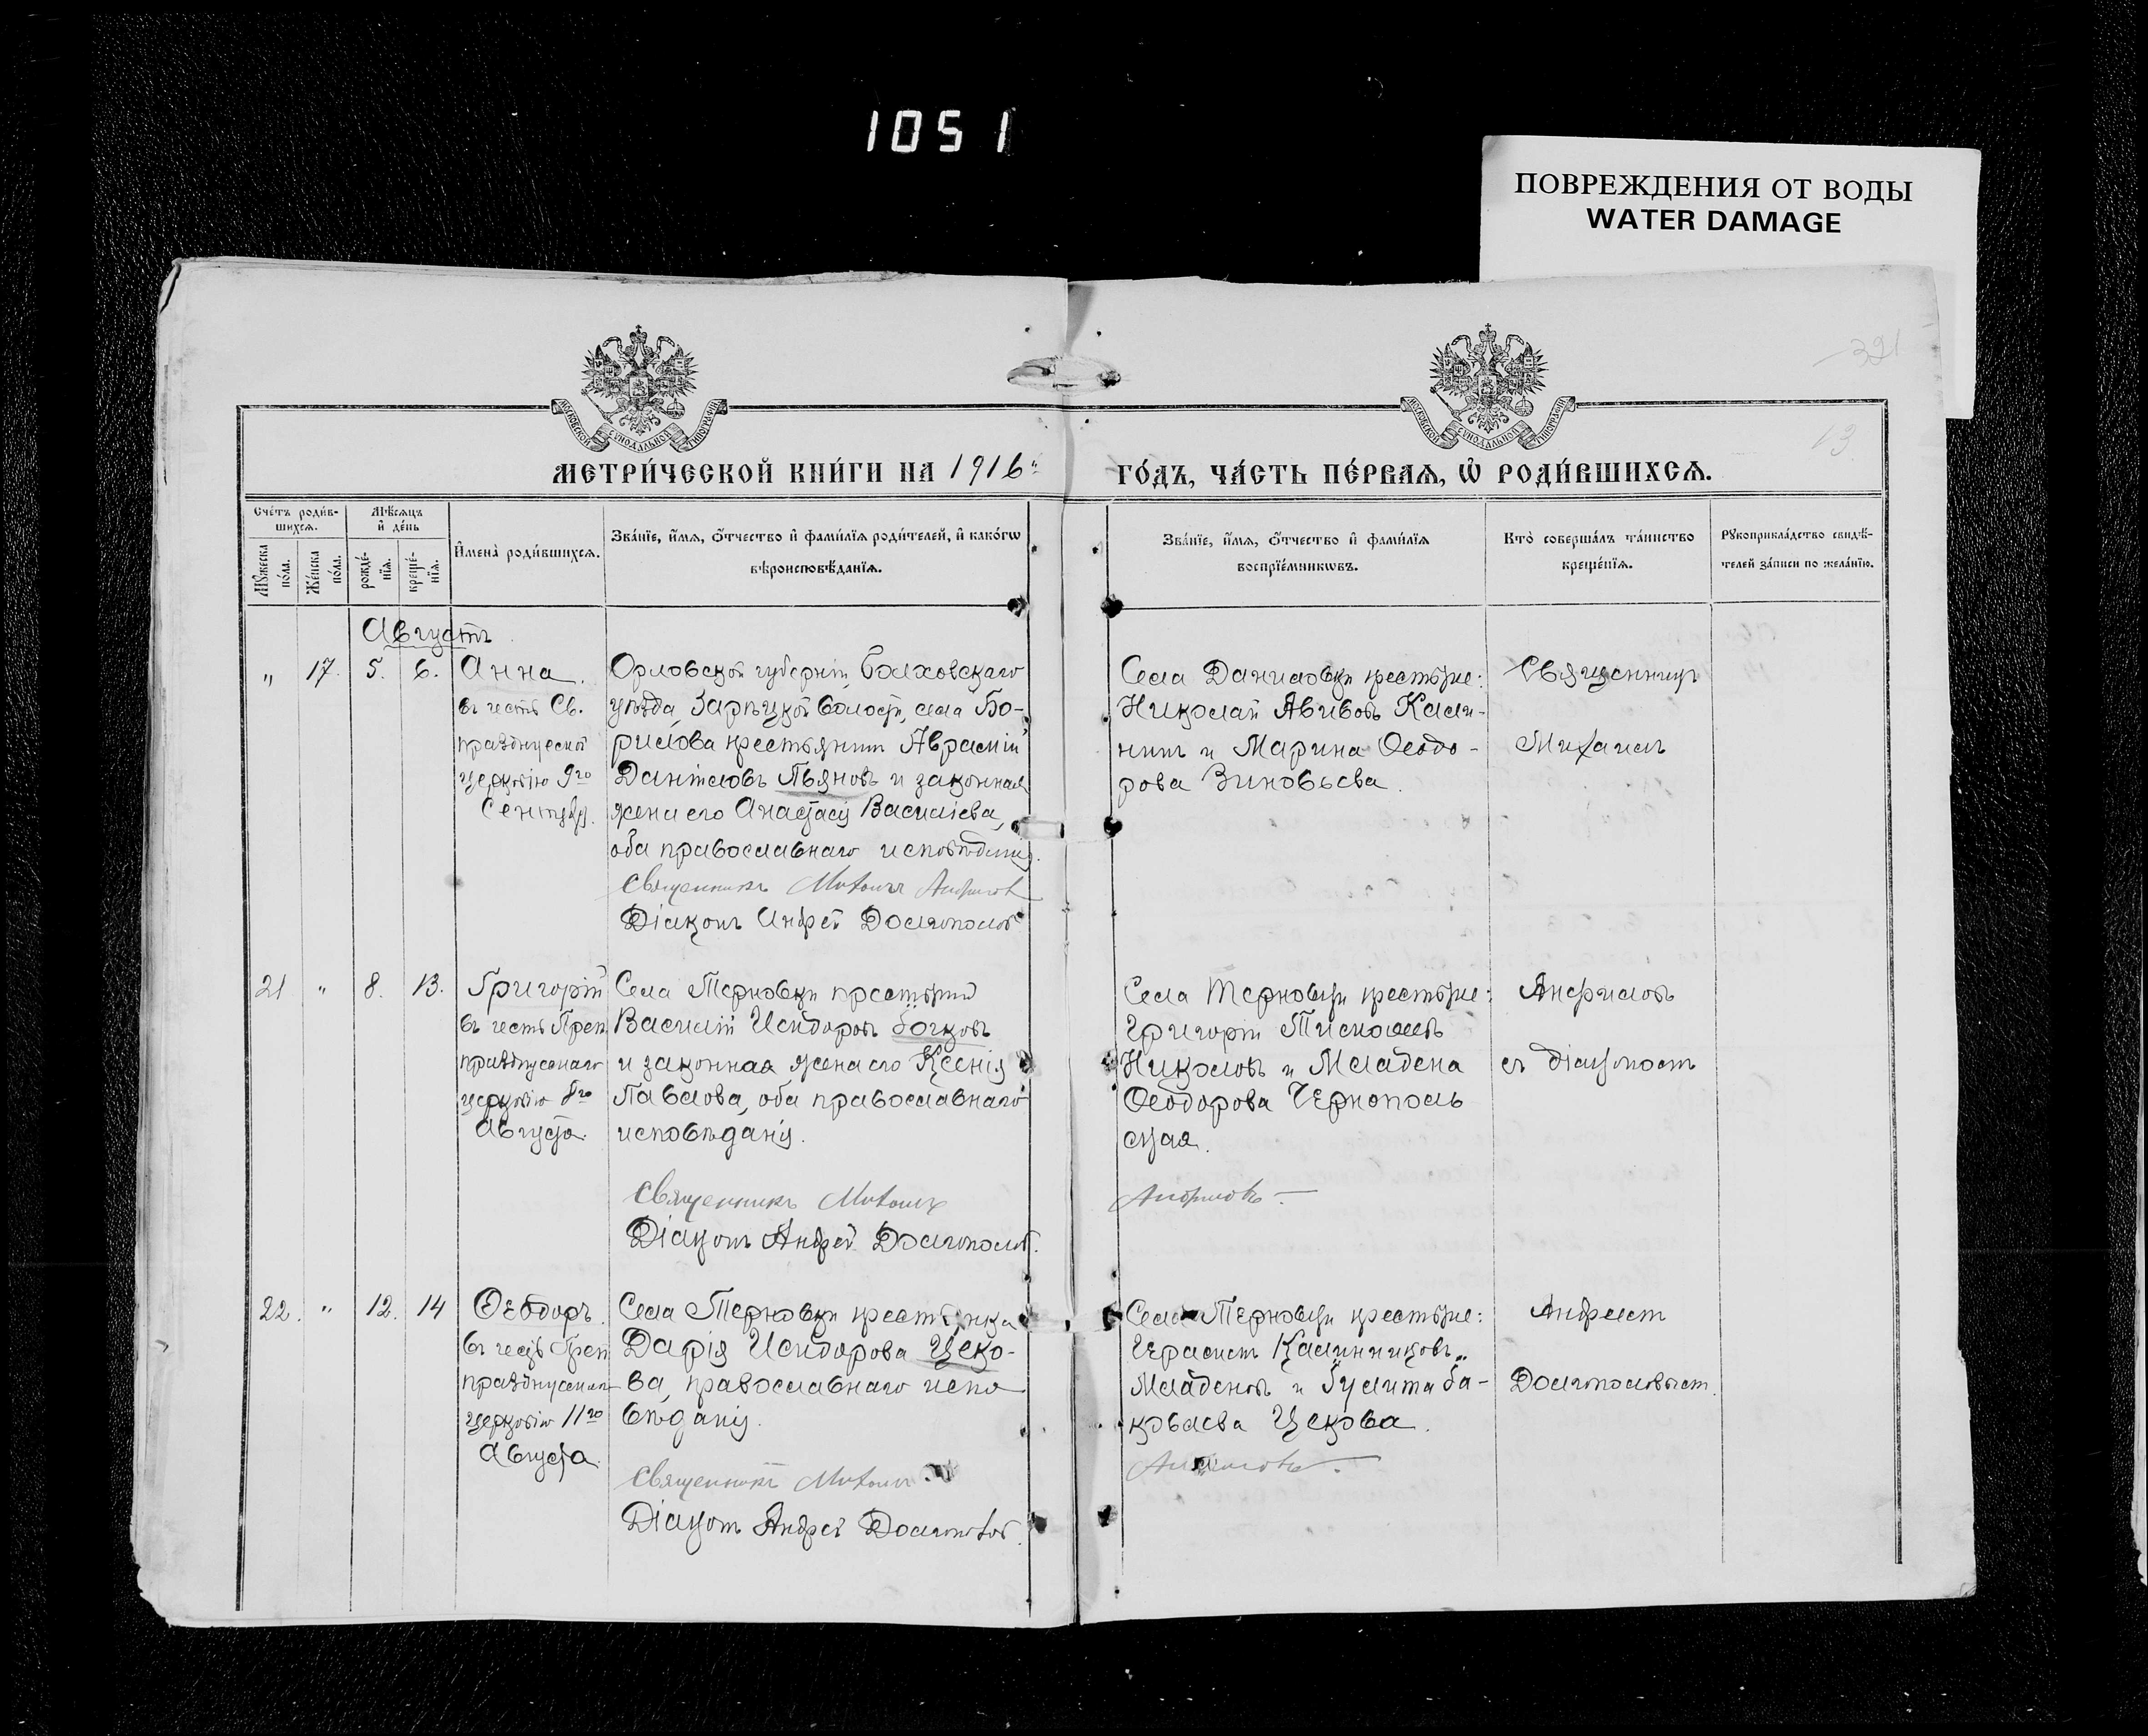 1051
ПОВРЕЖДЕНИЯ ОТ ВОДЫ
WATER DAMAGE
321
13
МОСКОВСКОЙ СѴНОДАЛЬНОЙ ТИПОГРАФІИ
МОСКОВСКОЙ СѴНОДАЛЬНОЙ ТИПОГРАФІИ
МЕТРИ́ЧЕСКОЙ КНИ́ГИ НА 1916й
ГО́ДЪ, ЧА́СТЬ ПЕ́РВАЯ, Ѡ҆ РОДИ́ВШИХСЯ.
Сче́тъ роди́в-
шихся.
Мꙋ́жеска
по́ла.
Же́нска
по́ла.
Мѣ́сяцъ
и҆ де́нь
рожде́-
нїя.
креще́-
нїя.
И҆мена̀ роди́вшихся.
Зва́нїе, и҆́мя, ѻ҆́тчество и҆ фами́лїя роди́телей, и҆ како́гѡ
вѣроисповѣ́данїя.
Зва́нїе, и҆́мя, ѻ҆́тчество и҆ фами́лїя
воспрїе́мникѡвъ.
Кто̀ соверша́лъ та́инство
креще́нїя.
Рꙋкоприкла́дство свидѣ́-
телей за́писи по жела́нїю.
Августъ
" 17. 5. 6. Анна.
въ честь Св.
празднуемой
церковію 9го
Сентября.
Орловской губерніи, Болховскаго
уѣзда, Зарѣцкой волости, села Бо-
рилова крестьянинъ Аврамій
Даніиловъ Пьяновъ и законная
жена его Анастасія Васильева,
оба православнаго исповѣданія.
Священникъ Михаилъ Анфимовъ
Діаконъ Андрей Долгополовъ
Села Даниловки крестьяне:
Николай Авивовъ Кали-
нинъ и Марина Ѳеодо-
рова Зиновьева.
Священникъ
Михаилъ
21 " 8. 13. Григорій
въ честь Преп.
празднуемаго
церковію 8го
Августа.
Села Терновки крестьянинъ
Василій Исидоровъ Бочковъ
и законная жена его Ксенія
Павлова, оба православнаго
исповѣданія.
Священникъ Михаилъ
Діаконъ Андрей Долгополовъ.
Села Терновки крестьяне:
Григорій
Николовъ и Младена
Ѳеодорова Чернополь
ская.
Анфимовъ
Анфимовъ
съ діакономъ
22. " 12. 14 Ѳеодоръ.
въ честь Преп.
празднуемаго
церковію 11го
Августа.
Села Терновки крестьянка
Дарія Исидорова Цеко-
ва, православнаго испо
вѣданія.
Священникъ Михаилъ
Діаконъ Андрей Долгополовъ.
Села Терновки крестьяне:
Герасимъ Калинниковъ
Младеновъ и Гулита Ба-
ковлева Цекова.
Анфимовъ.
Андреемъ
Долгополовымъ.